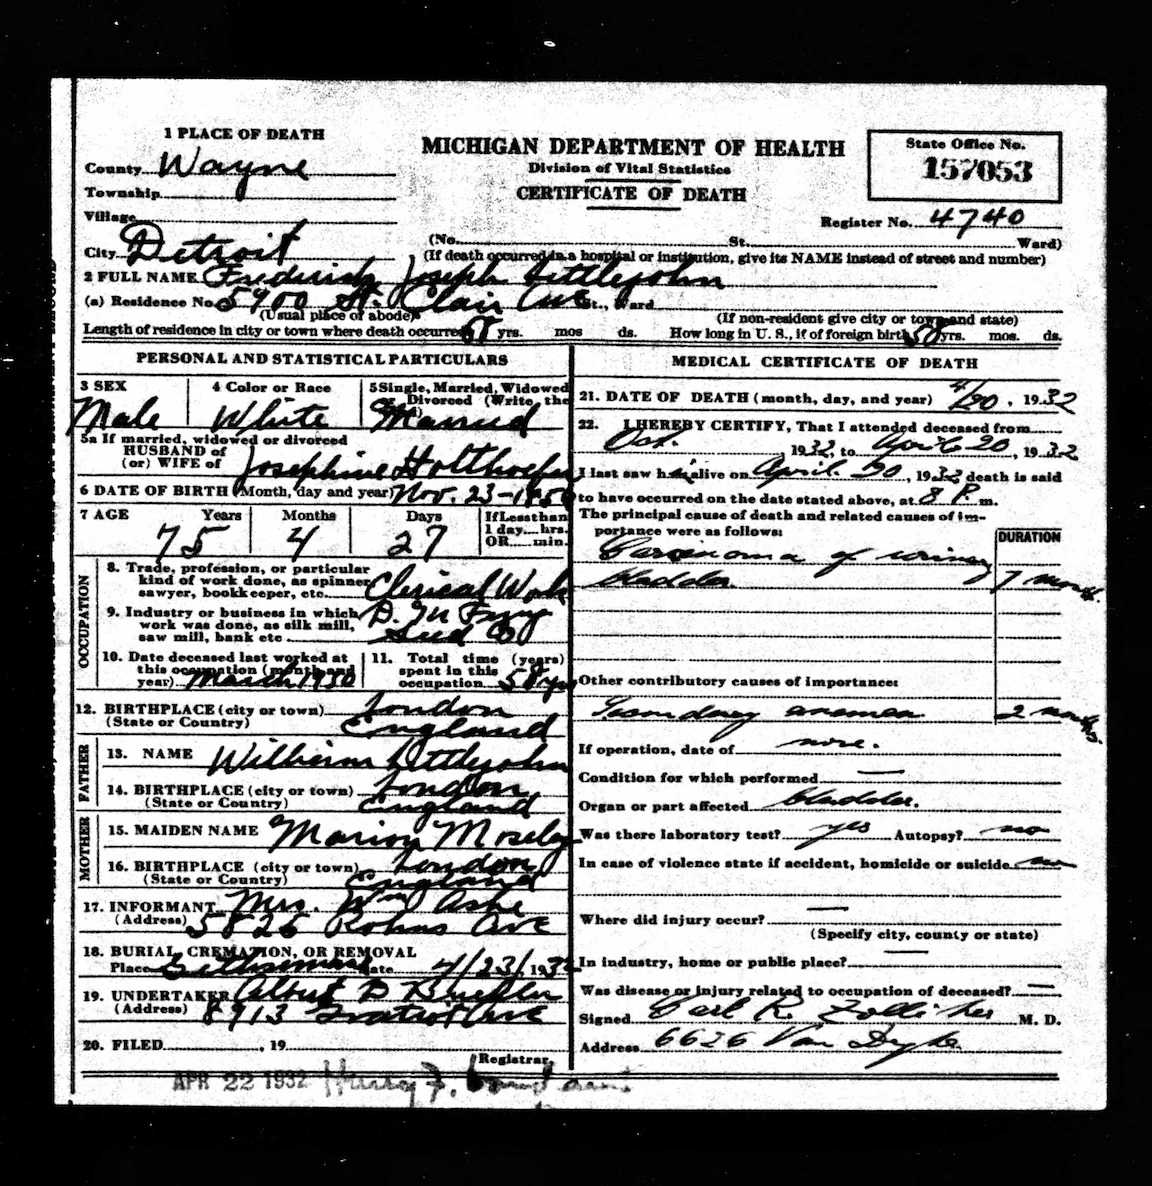 1 PLACE OF DEATH
County Wayne
Township
Village
City Detroit
MICHIGAN DEPARTMENT OF HEALTH
Division of Vital Statistics
CERTIFICATE OF DEATH
State Office No.
157053
Register No. 4740
(No. St. Ward)
(If death occurred in a hospital or institution, give its NAME instead of street and number)
2 FULL NAME Frederick Joseph Littlejohn
(a) Residence No. 5900 St. Clair Ave St., Ward
(Usual place of abode) (If non-resident give city or town and state)
Length of residence in city or town where death occurred 58 yrs. mos ds. How long in U. S., if of foreign birth 58 yrs. mos. ds.
PERSONAL AND STATISTICAL PARTICULARS
3 SEX
Male
4 Color or Race
White
5 Single, Married, Widowed
Divorced (Write the
Married
5a If married, widowed or divorced
HUSBAND of
(or) WIFE of Josephine Holthoefer
6 DATE OF BIRTH (Month, day and year) Nov. 23-1856
7 AGE Years Months Days If Less than
1 day....hrs.
OR.....min.
75 4 27
OCCUPATION
8. Trade, profession, or particular
kind of work done, as spinner
sawyer, bookkeeper, etc. Clerical Work
9. Industry or business in which
work was done, as silk mill,
saw mill, bank etc D. M Ferry
Seed Co
10. Date deceased last worked at
this occupation (month and
year) March 1930
11. Total time (years)
spent in this
occupation 58 yrs
12. BIRTHPLACE (city or town) London
(State or Country) England
FATHER
13. NAME William Littlejohn
14. BIRTHPLACE (city or town) London
(State or Country) England
MOTHER
15. MAIDEN NAME Marion Moseley
16. BIRTHPLACE (city or town) London
(State or Country) England
17. INFORMANT Mrs. Wm Ashe
(Address) 5826 Rohns Ave
18. BURIAL, CREMATION, OR REMOVAL
Place Gethsemane Date 4/23/1932
19. UNDERTAKER Albert D
(Address) 8913 Gratiot Ave
20. FILED , 19
Registrar
APR 22 1932 Henry F.
MEDICAL CERTIFICATE OF DEATH
21. DATE OF DEATH (month, day, and year) 4/20, 1932
22. I HEREBY CERTIFY, That I attended deceased from
Oct. 1932, to April 20, 1932
I last saw him alive on April 20, 1932 death is said
to have occurred on the date stated above, at 8 P. m.
The principal cause of death and related causes of im-
portance were as follows:
DURATION
Carcinoma of urinary
bladder 7 months.
Other contributory causes of importance:
Secondary anemea 2 months.
If operation, date of none.
Condition for which performed —
Organ or part affected bladder.
Was there laboratory test? yes Autopsy? no
In case of violence state if accident, homicide or suicide no
Where did injury occur? —
(Specify city, county or state)
In industry, home or public place? —
Was disease or injury related to occupation of deceased? —
Signed Carl R. M. D.
Address 6626 Van Dyke